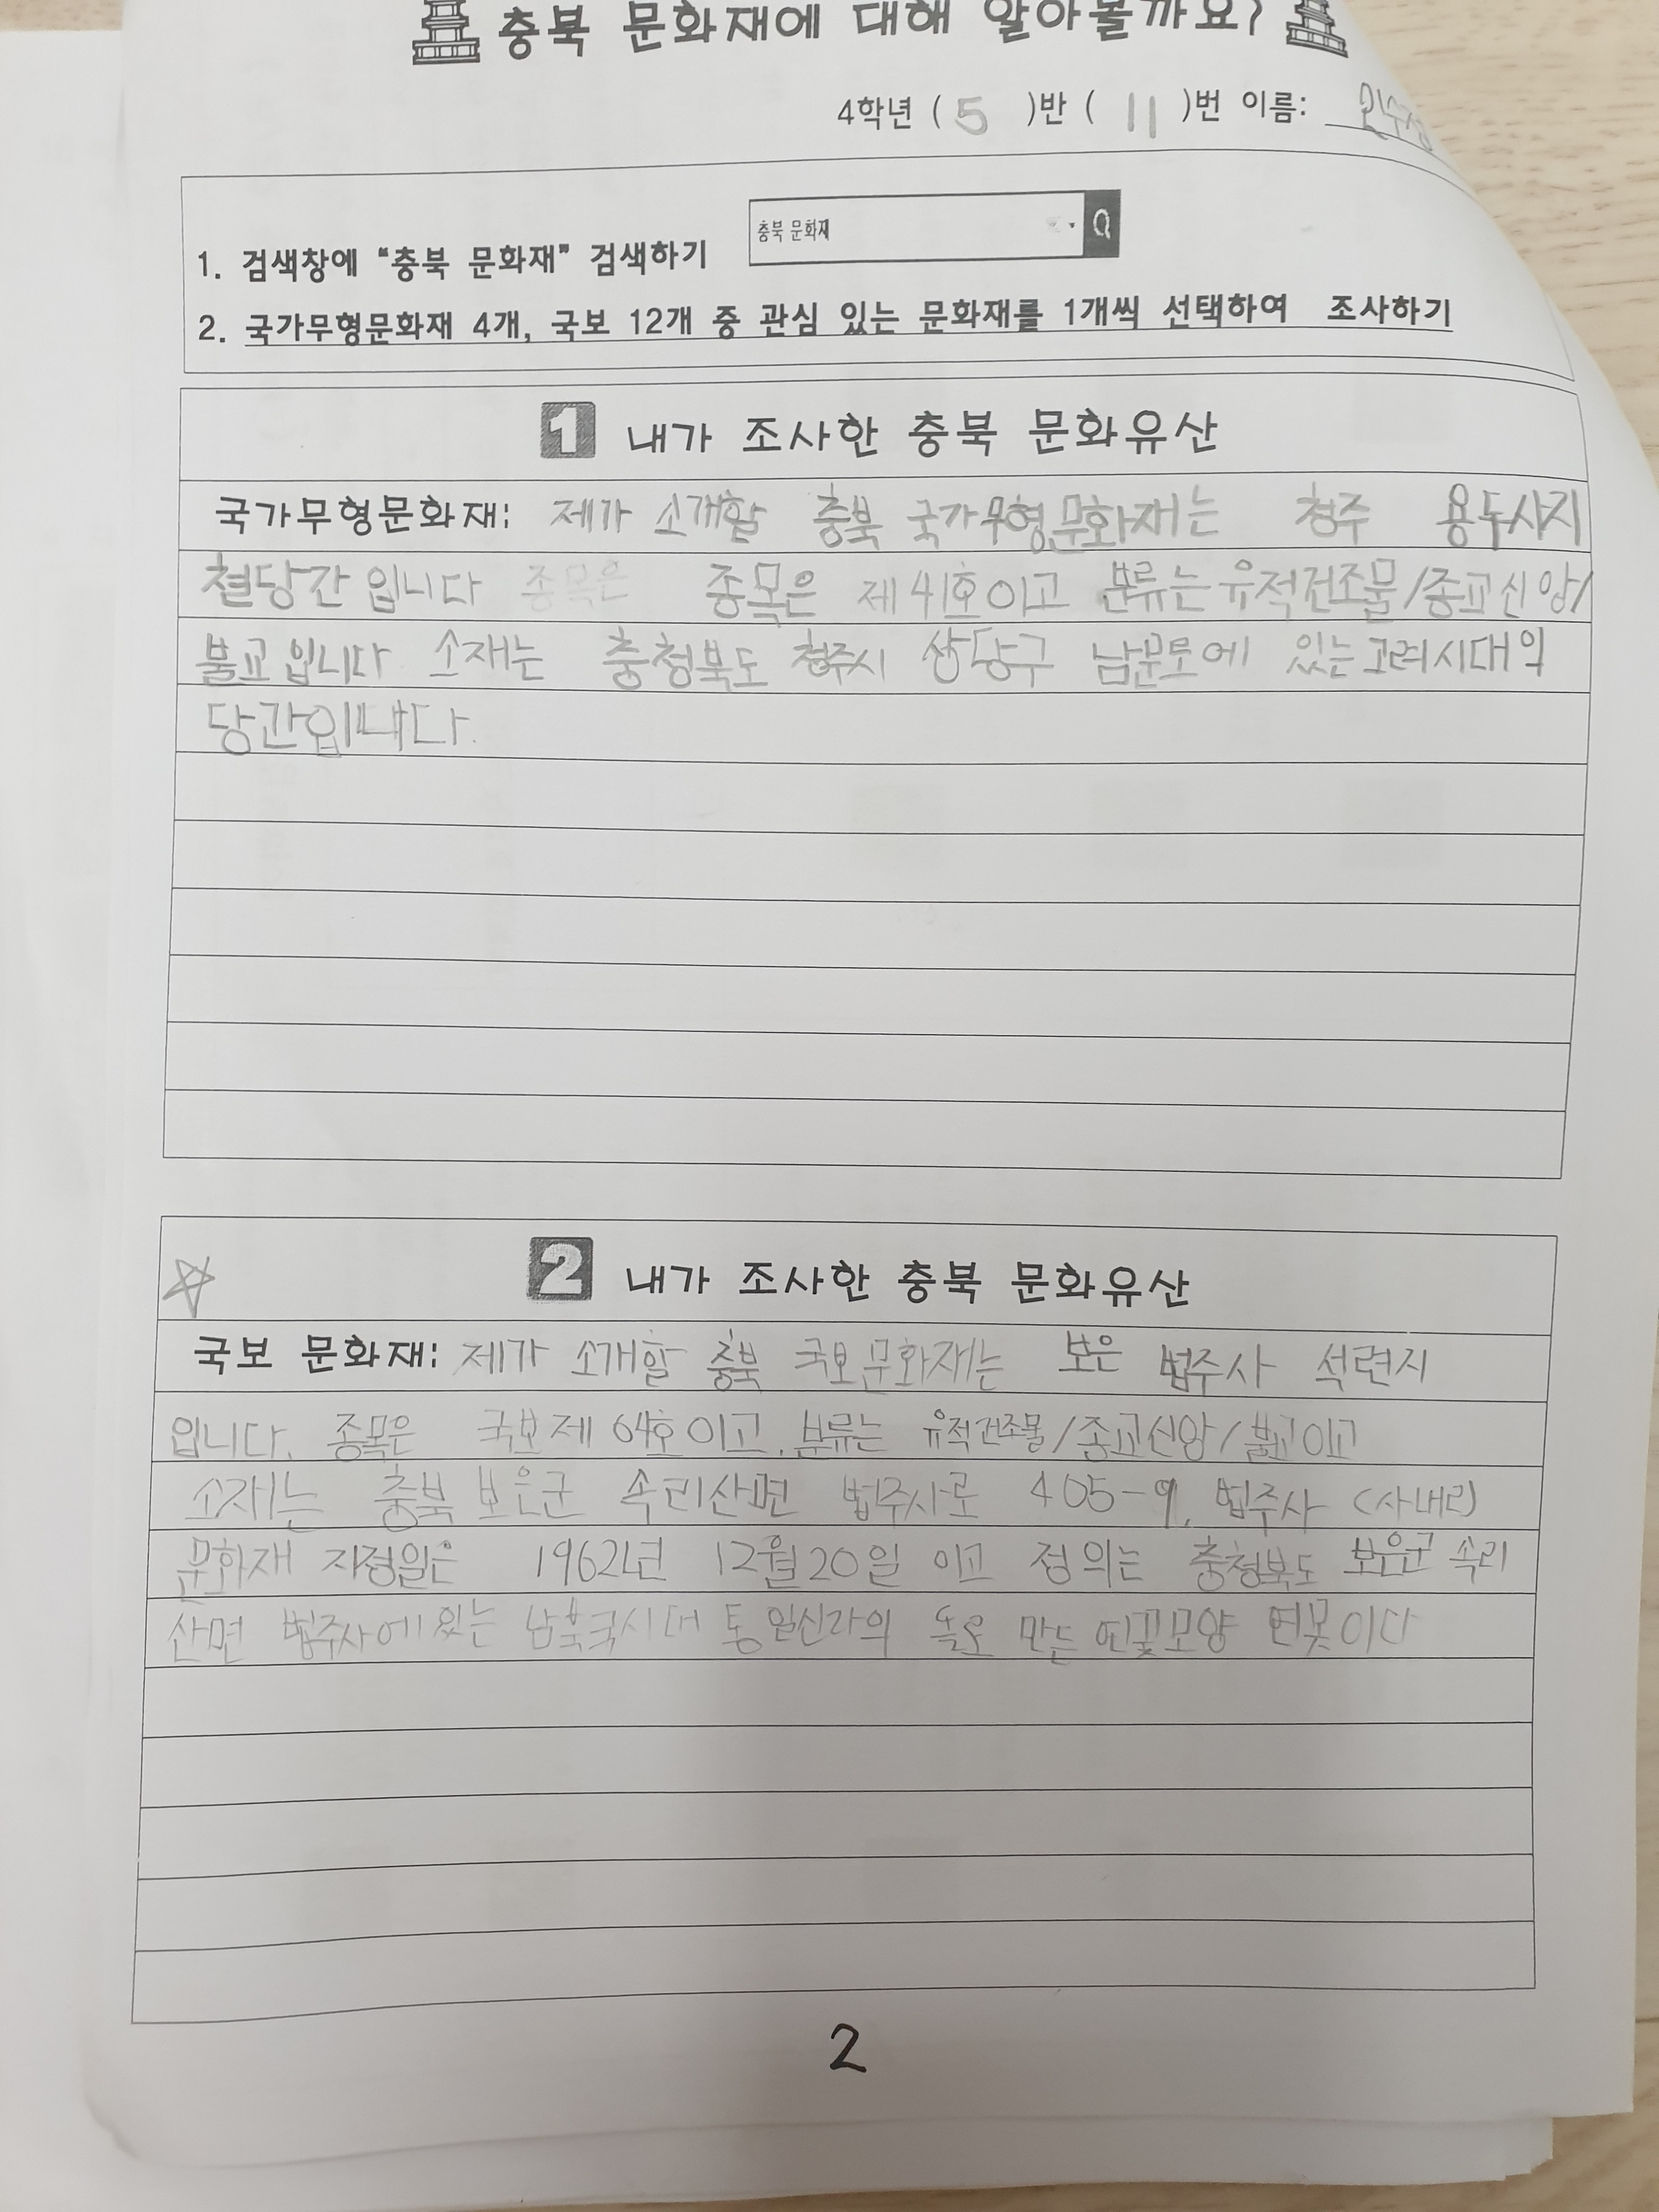 충북 문화재에 대해 알아볼까요?
4학년 ( 5 )반 ( 11 )번 이름:
충북 문화재
1. 검색창에 "충북 문화재" 검색하기
2. 국가무형문화재 4개, 국보 12개 중 관심 있는 문화재를 1개씩 선택하여 조사하기
1 내가 조사한 충북 문화유산
국가무형문화재: 제가 소개할 충북 국가무형문화재는 청주 용두사지
철당간 입니다 종목은 종목은 제 41호이고 분류는 유적건조물/종교신앙/
불교 입니다 소재는 충청북도 청주시 상당구 남문로에 있는 고려시대의
당간입니다.
2 내가 조사한 충북 문화유산
국보 문화재: 제가 소개할 충북 국보문화재는 보은 법주사 석련지
입니다. 종목은 국보 제 64호이고, 분류는 유적건조물/종교신앙/불교이고
소재는 충북 보은군 속리산면 법주사로 405-9, 법주사 (사내리)
문화재 지정일은 1962년 12월 20일 이고 정의는 충청북도 보은군 속리
산면 법주사에 있는 남북국시대 통일신라의 만든 연꽃모양 연못이다
2